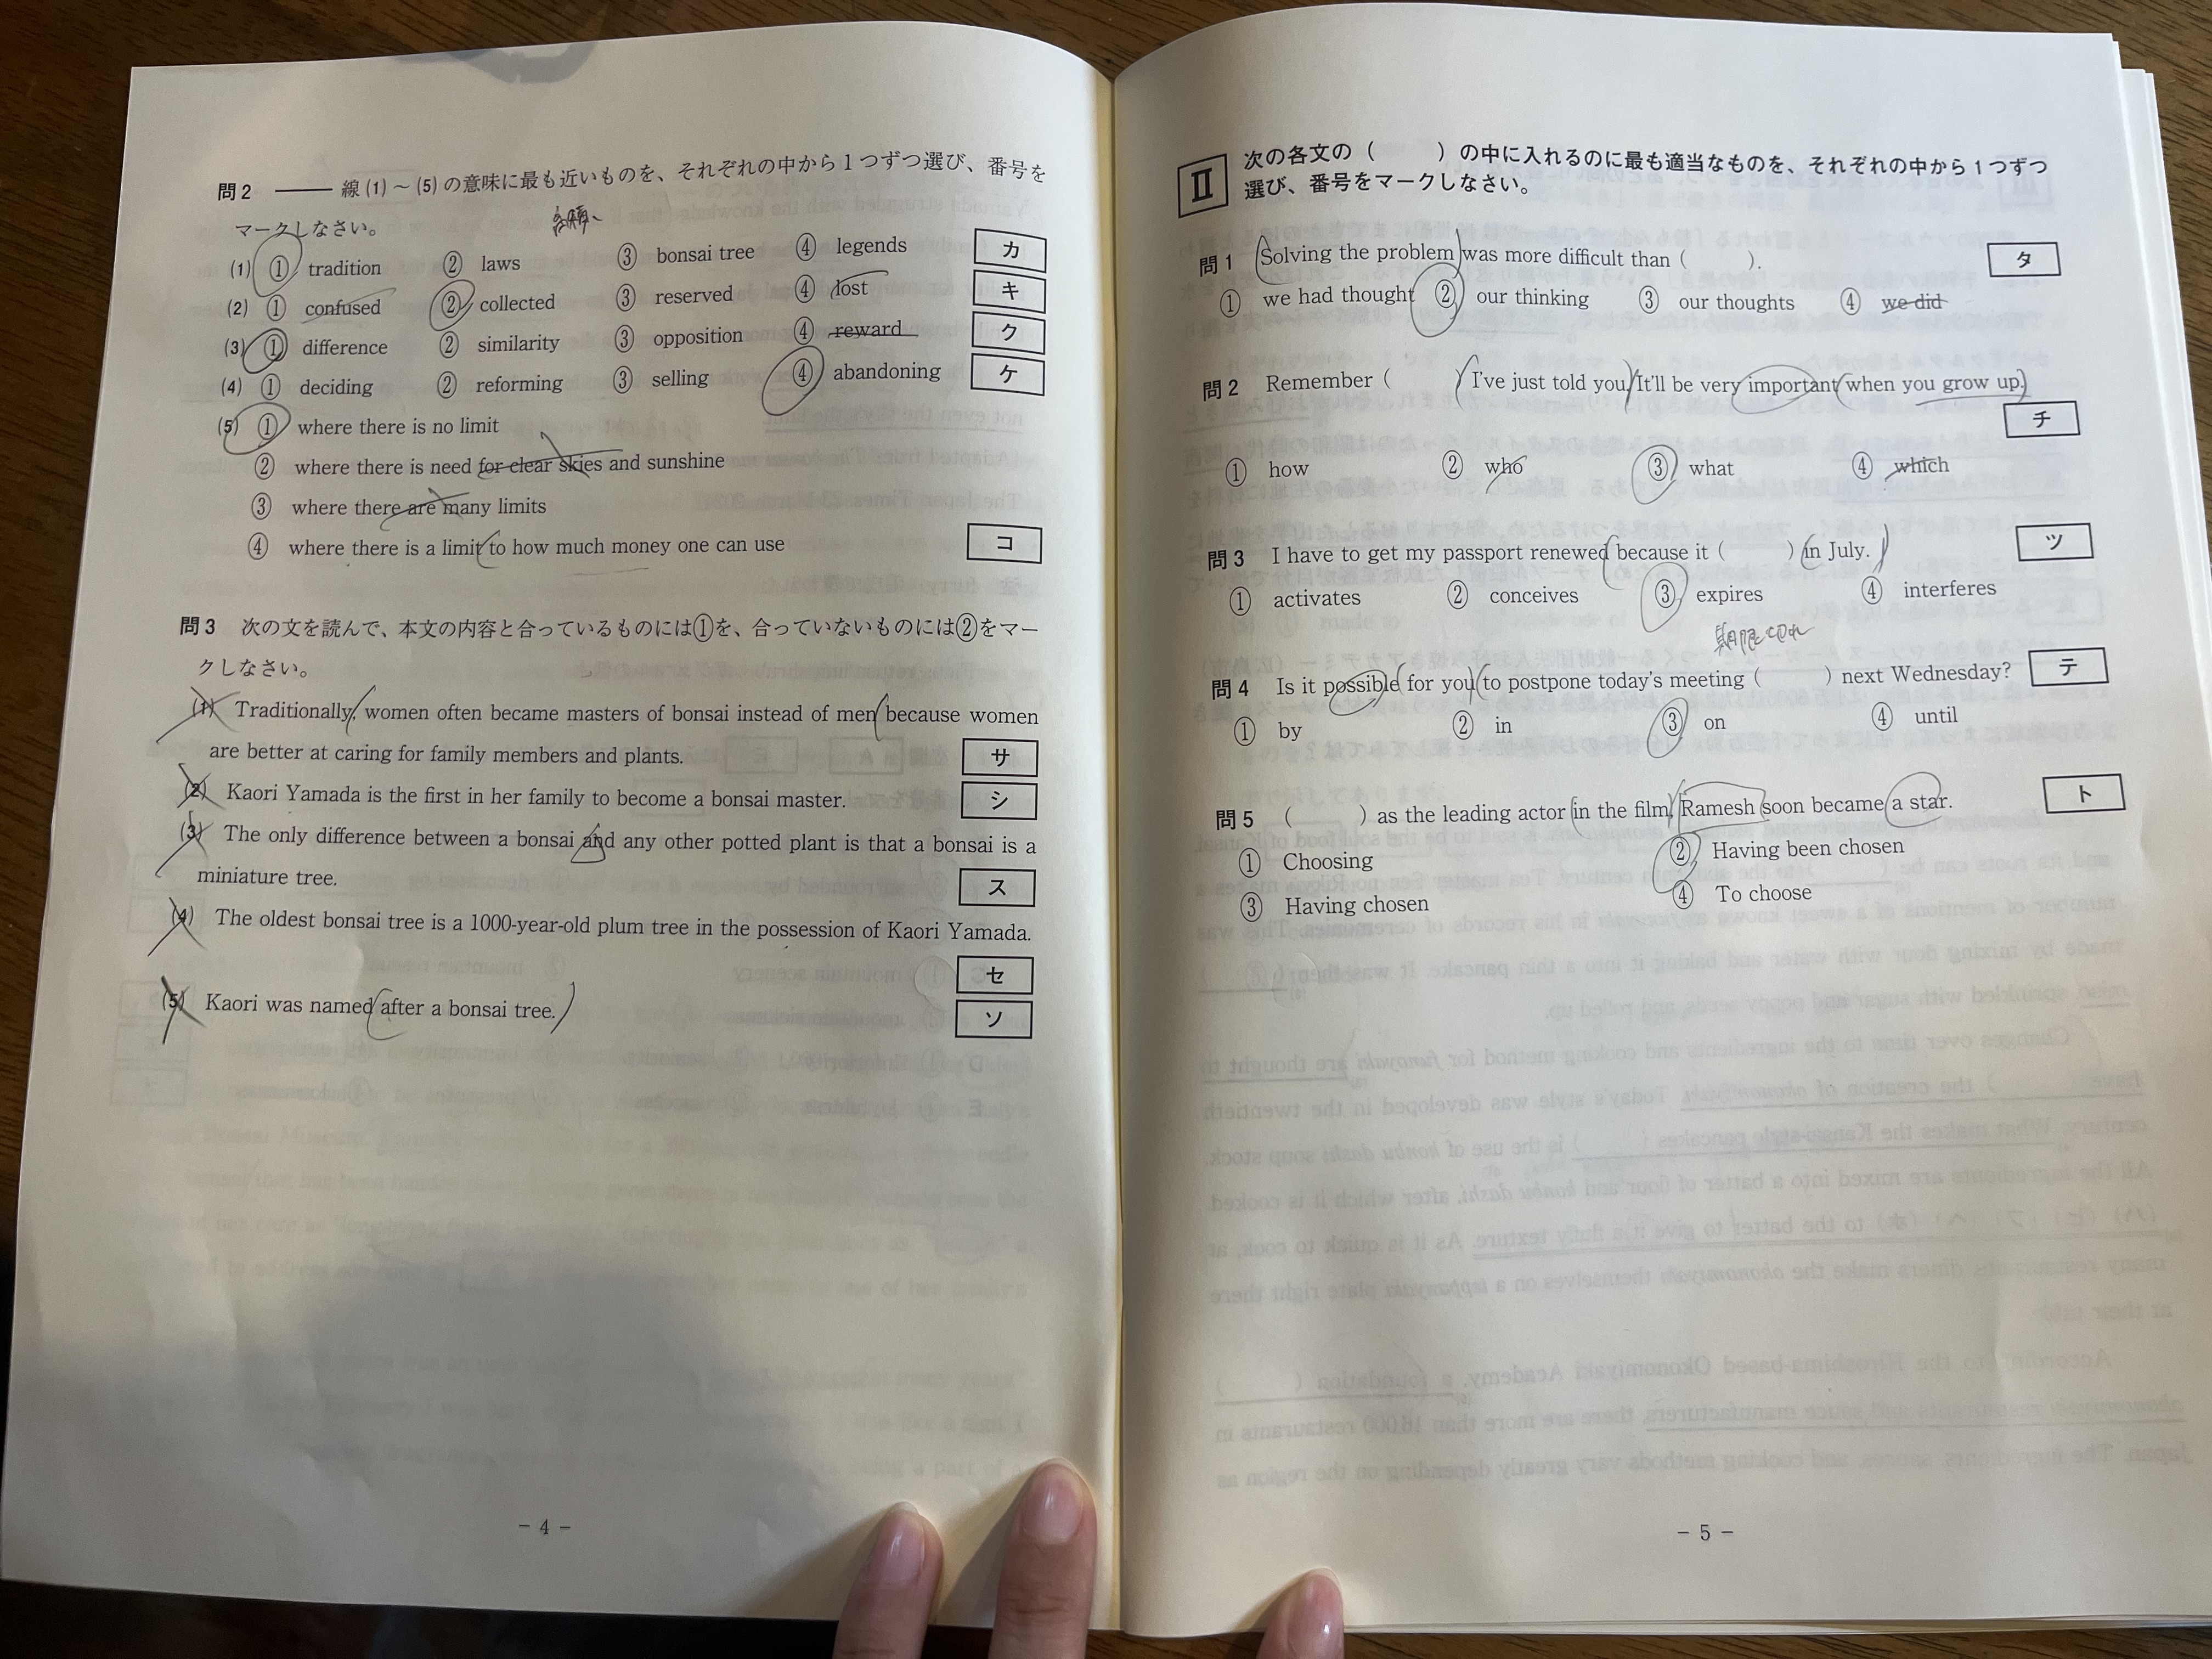 問2 ―― 線(1)～(5)の意味に最も近いものを、それぞれの中から1つずつ選び、番号を
マークしなさい。
(1) ① tradition ② laws ③ bonsai tree ④ legends カ
(2) ① confused ② collected ③ reserved ④ lost キ
(3) ① difference ② similarity ③ opposition ④ reward ク
(4) ① deciding ② reforming ③ selling ④ abandoning ケ
(5) ① where there is no limit
② where there is need for clear skies and sunshine
③ where there are many limits
④ where there is a limit to how much money one can use コ
問3 次の文を読んで、本文の内容と合っているものには①を、合っていないものには②をマー
クしなさい。
(1) Traditionally, women often became masters of bonsai instead of men because women
are better at caring for family members and plants. サ
(2) Kaori Yamada is the first in her family to become a bonsai master. シ
(3) The only difference between a bonsai and any other potted plant is that a bonsai is a
miniature tree. ス
(4) The oldest bonsai tree is a 1000-year-old plum tree in the possession of Kaori Yamada.
セ
(5) Kaori was named after a bonsai tree. ソ
－ 4 －
Ⅱ 次の各文の（ ）の中に入れるのに最も適当なものを、それぞれの中から1つずつ
選び、番号をマークしなさい。
問1 Solving the problem was more difficult than ( ). タ
① we had thought ② our thinking ③ our thoughts ④ we did
問2 Remember ( ) I've just told you. It'll be very important when you grow up.
チ
① how ② who ③ what ④ which
問3 I have to get my passport renewed because it ( ) in July. ツ
① activates ② conceives ③ expires ④ interferes
期限切れ
問4 Is it possible for you to postpone today's meeting ( ) next Wednesday? テ
① by ② in ③ on ④ until
問5 ( ) as the leading actor in the film, Ramesh soon became a star. ト
① Choosing ② Having been chosen
③ Having chosen ④ To choose
－ 5 －